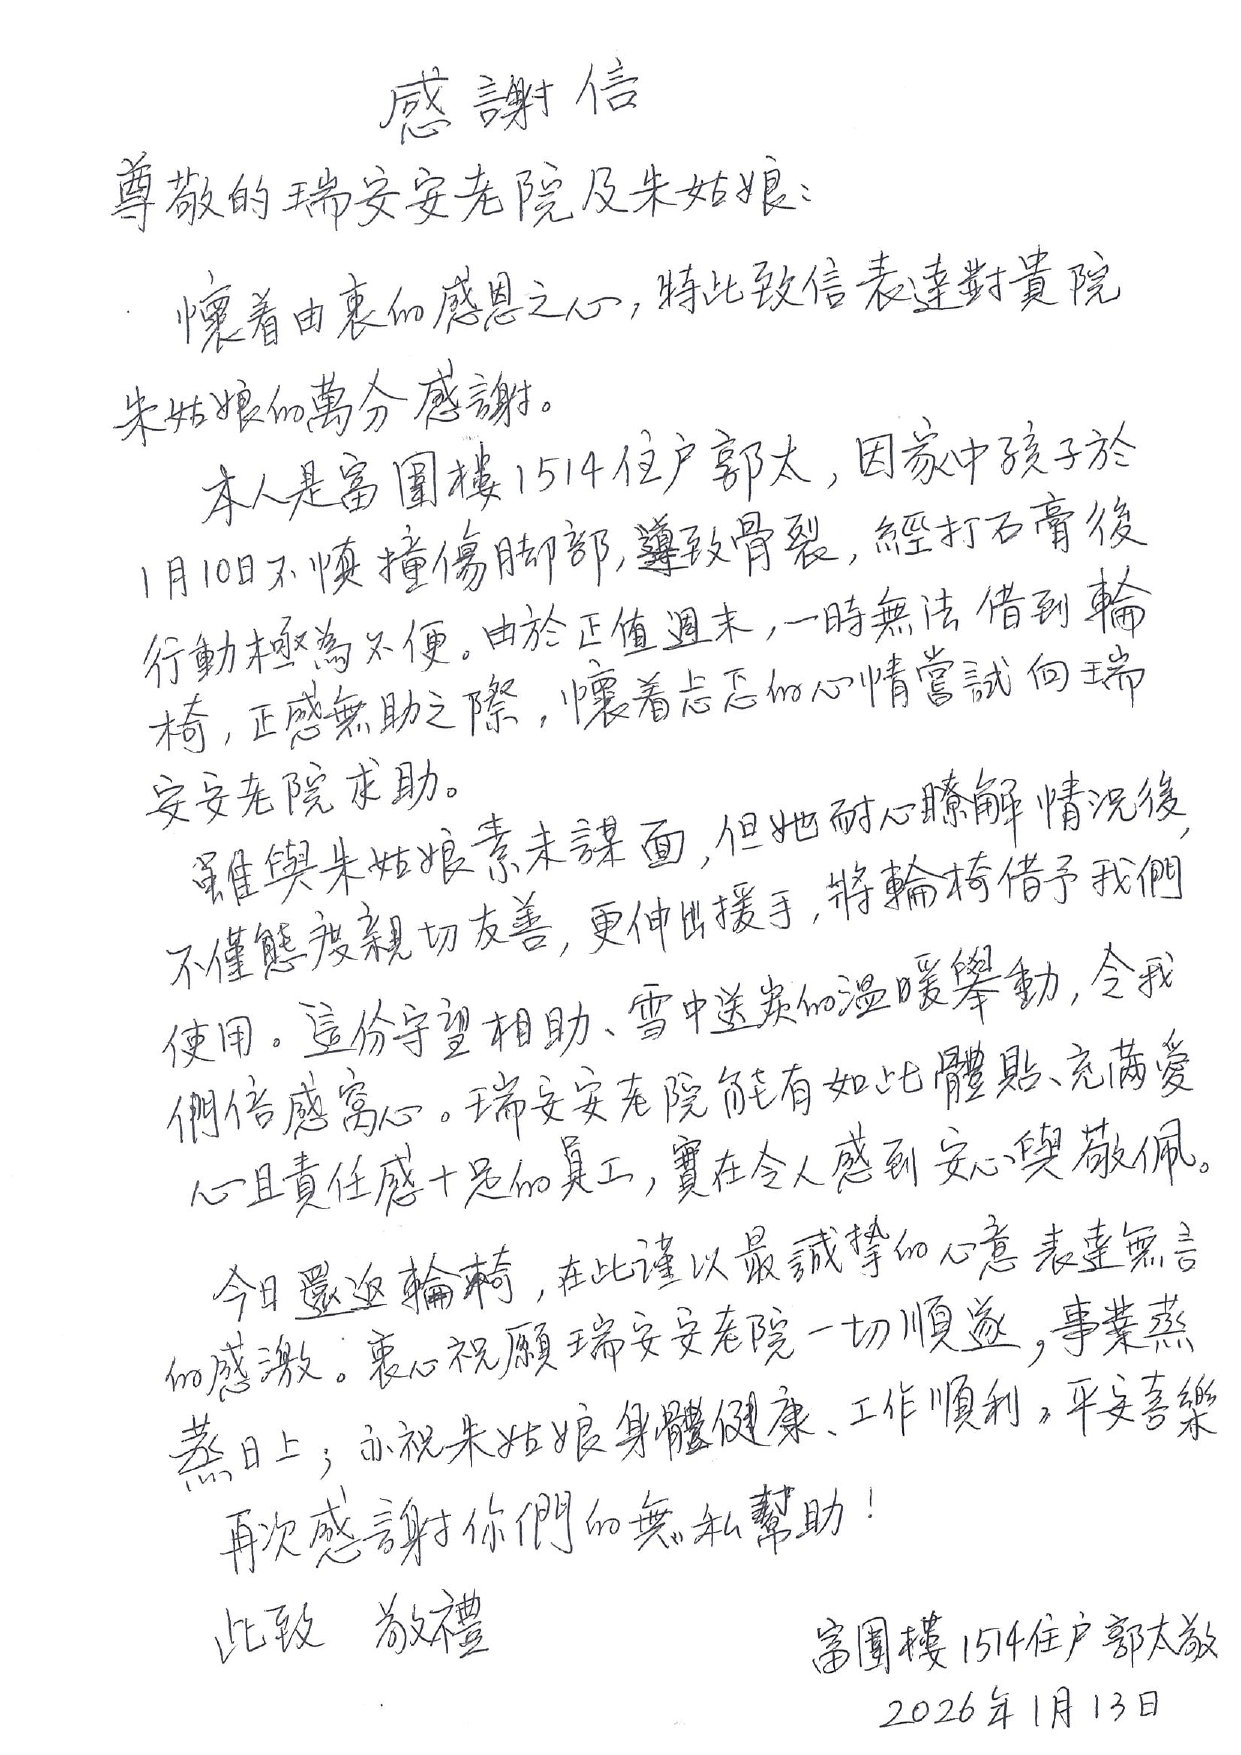 感謝信
尊敬的瑞安安老院及朱姑娘：
懷着由衷的感恩之心，特此致信表達對貴院
朱姑娘的萬分感謝。
本人是富圍樓1514住户郭太，因家中孩子於
1月10日不慎撞傷脚部，導致骨裂，經打石膏後
行動極為不便。由於正值週末，一時無法借到輪
椅，正感無助之際，懷着忐忑的心情嘗試向瑞
安安老院求助。
雖與朱姑娘素未謀面，但她耐心瞭解情况後，
不僅態度親切友善，更伸出援手，將輪椅借予我們
使用。這份守望相助、雪中送炭的温暖舉動，令我
們倍感窩心。瑞安安老院能有如此體貼、充滿愛
心且責任感十足的員工，實在令人感到安心與敬佩。
今日還返輪椅，在此謹以最誠摯的心意表達無言
的感激。衷心祝願瑞安安老院一切順遂，事業蒸
蒸日上；亦祝朱姑娘身體健康、工作順利，平安喜樂
再次感謝你們的無私幫助！
此致 敬禮
富圍樓1514住户郭太敬
2026年1月13日